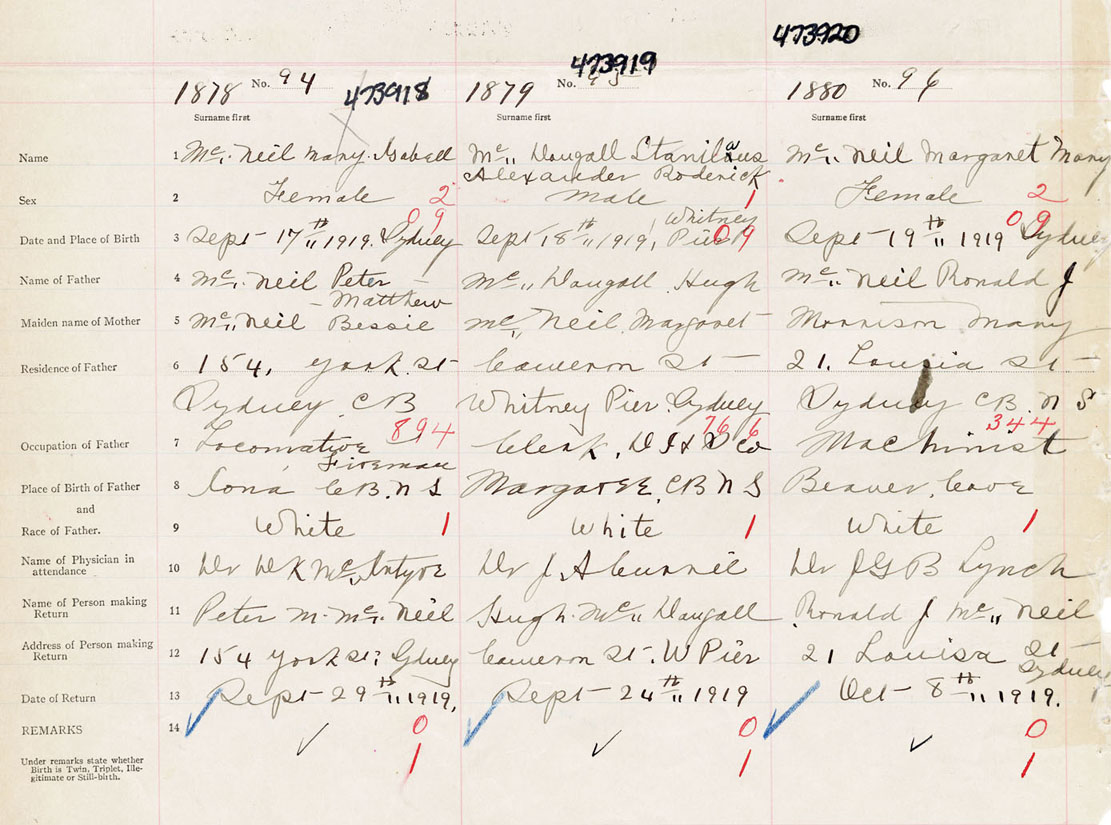 473920
473919
1878 No. 94 473918 1879 No. 95 1880 No. 96
Surname first Surname first Surname first
Name 1 Mc. Neil Mary Isabell Mc. Dougall Stanilaus Mc. Neil Margaret Mary
Alexander Roderick
Sex 2 Female 2 Male 1 Female 2
09 Whitney 09
Date and Place of Birth 3 Sept 17th 1919. Sydney Sept 18th 1919, Pier 09 Sept 19th 1919 Sydney
Name of Father 4 Mc. Neil Peter Mc. Dougall Hugh Mc. Neil Ronald J
Matthew
Maiden name of Mother 5 Mc. Neil Bessie Mc. Neil Margaret Morrison Mary
Residence of Father 6 154, York. St Cameron St 21. Lousia St
Sydney CB Whitney Pier Sydney Sydney CB. N S
894 766 344
Occupation of Father 7 Locomative Clerk, D I & S Co Machinist
Fireman
Place of Birth of Father 8 Iona CB. N S Margaree, CB N S Beaver Cove
and
Race of Father. 9 White 1 White 1 White 1
Name of Physician in
attendance 10 Dr D K Mc. Intyre Dr J. A Dr J G B Lynch
Name of Person making
Return 11 Peter M. Mc. Neil Hugh Mc. Dougall Ronald J Mc. Neil
Address of Person making
Return 12 154 York St, Sydney Cameron St. W Pier 21 Louisa St
Sydney
Date of Return 13 Sept 29th 1919. Sept 24th 1919 Oct 8th 1919.
REMARKS 14 ✓ ✓ 0 ✓ ✓ 0 ✓ ✓ 0
Under remarks state whether
Birth is Twin, Triplet, Ille-
gitimate or Still-birth. 1 1 1